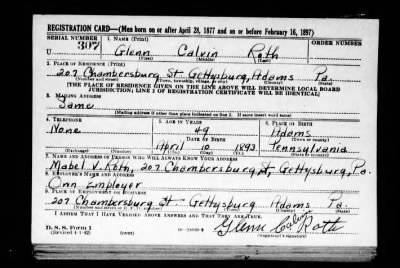 REGISTRATION CARD—(Men born on or after April 28, 1877 and on or before February 16, 1897)
SERIAL NUMBER 1. NAME (Print) ORDER NUMBER
U 307 Glenn Calvin Roth
(First) (Middle) (Last)
2. PLACE OF RESIDENCE (Print)
207 Chambersburg St Gettysburg, Adams Pa.
(Number and street) (Town, township, village, or city) (County) (State)
[THE PLACE OF RESIDENCE GIVEN ON THE LINE ABOVE WILL DETERMINE LOCAL BOARD
JURISDICTION; LINE 2 OF REGISTRATION CERTIFICATE WILL BE IDENTICAL]
3. MAILING ADDRESS
Same
[Mailing address if other than place indicated on line 2. If same insert word same]
4. TELEPHONE 5. AGE IN YEARS 6. PLACE OF BIRTH
None 49 Adams
DATE OF BIRTH (Town or county)
April 10 1893 Pennsylvania
(Exchange) (Number) (Mo.) (Day) (Yr.) (State or country)
7. NAME AND ADDRESS OF PERSON WHO WILL ALWAYS KNOW YOUR ADDRESS
Mabel V. Roth, 207 Chambersburg St, Gettysburg, Pa.
8. EMPLOYER'S NAME AND ADDRESS
Own Employer
9. PLACE OF EMPLOYMENT OR BUSINESS
207 Chambersburg St Gettysburg Adams Pa
(Number and street or R. F. D. number) (Town) (County) (State)
I AFFIRM THAT I HAVE VERIFIED ABOVE ANSWERS AND THAT THEY ARE TRUE.
D. S. S. Form 1
(Revised 4-1-42) (over) Glenn Calvin Roth
(Registrant's signature)